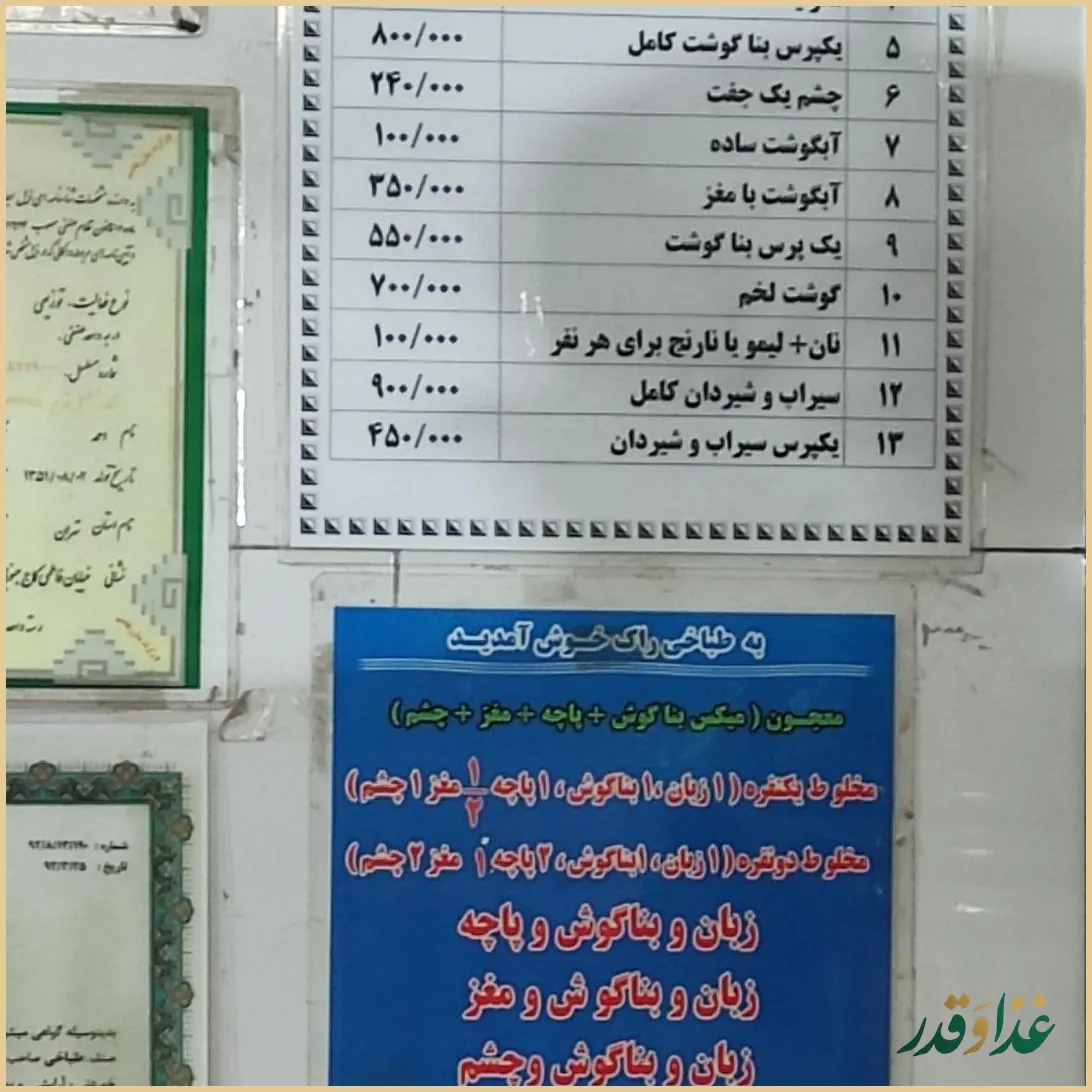 ۵ یکپرس بنا گوشت کامل ۸۰۰/۰۰۰
۶ چشم یک جفت ۲۴۰/۰۰۰
۷ آبگوشت ساده ۱۰۰/۰۰۰
۸ آبگوشت با مغز ۳۵۰/۰۰۰
۹ یک پرس بنا گوشت ۵۵۰/۰۰۰
۱۰ گوشت لخم ۷۰۰/۰۰۰
۱۱ نان+ لیمو یا نارنج برای هر نفر ۱۰۰/۰۰۰
۱۲ سیراب و شیردان کامل ۹۰۰/۰۰۰
۱۳ یکپرس سیراب و شیردان ۴۵۰/۰۰۰
به طباخی راک خوش آمدید
معجون ( میکس بنا گوش + پاچه + مغز + چشم )
مخلوط یکنفره ( ۱ زبان، ۱ بناگوش، ۱ پاچه ۱/۲ مغز ۱ چشم )
مخلوط دونفره ( ۱ زبان، ۱بناگوش، ۲ پاچه، ۱ مغز ۲ چشم )
زبان و بناگوش و پاچه
زبان و بناگو ش و مغز
زبان و بناگوش وچشم
نوع فعالیت: توزیعی
نام
تاریخ تولد ۱۳۵۱/۰۸/۰۲
نام استان تهران
نشانی خیابان فاطمی
شماره:
تاریخ: ۹۲/۳/۲۵
بدینوسیله گواهی
صنف طباخی صاحب
غذا و قدر